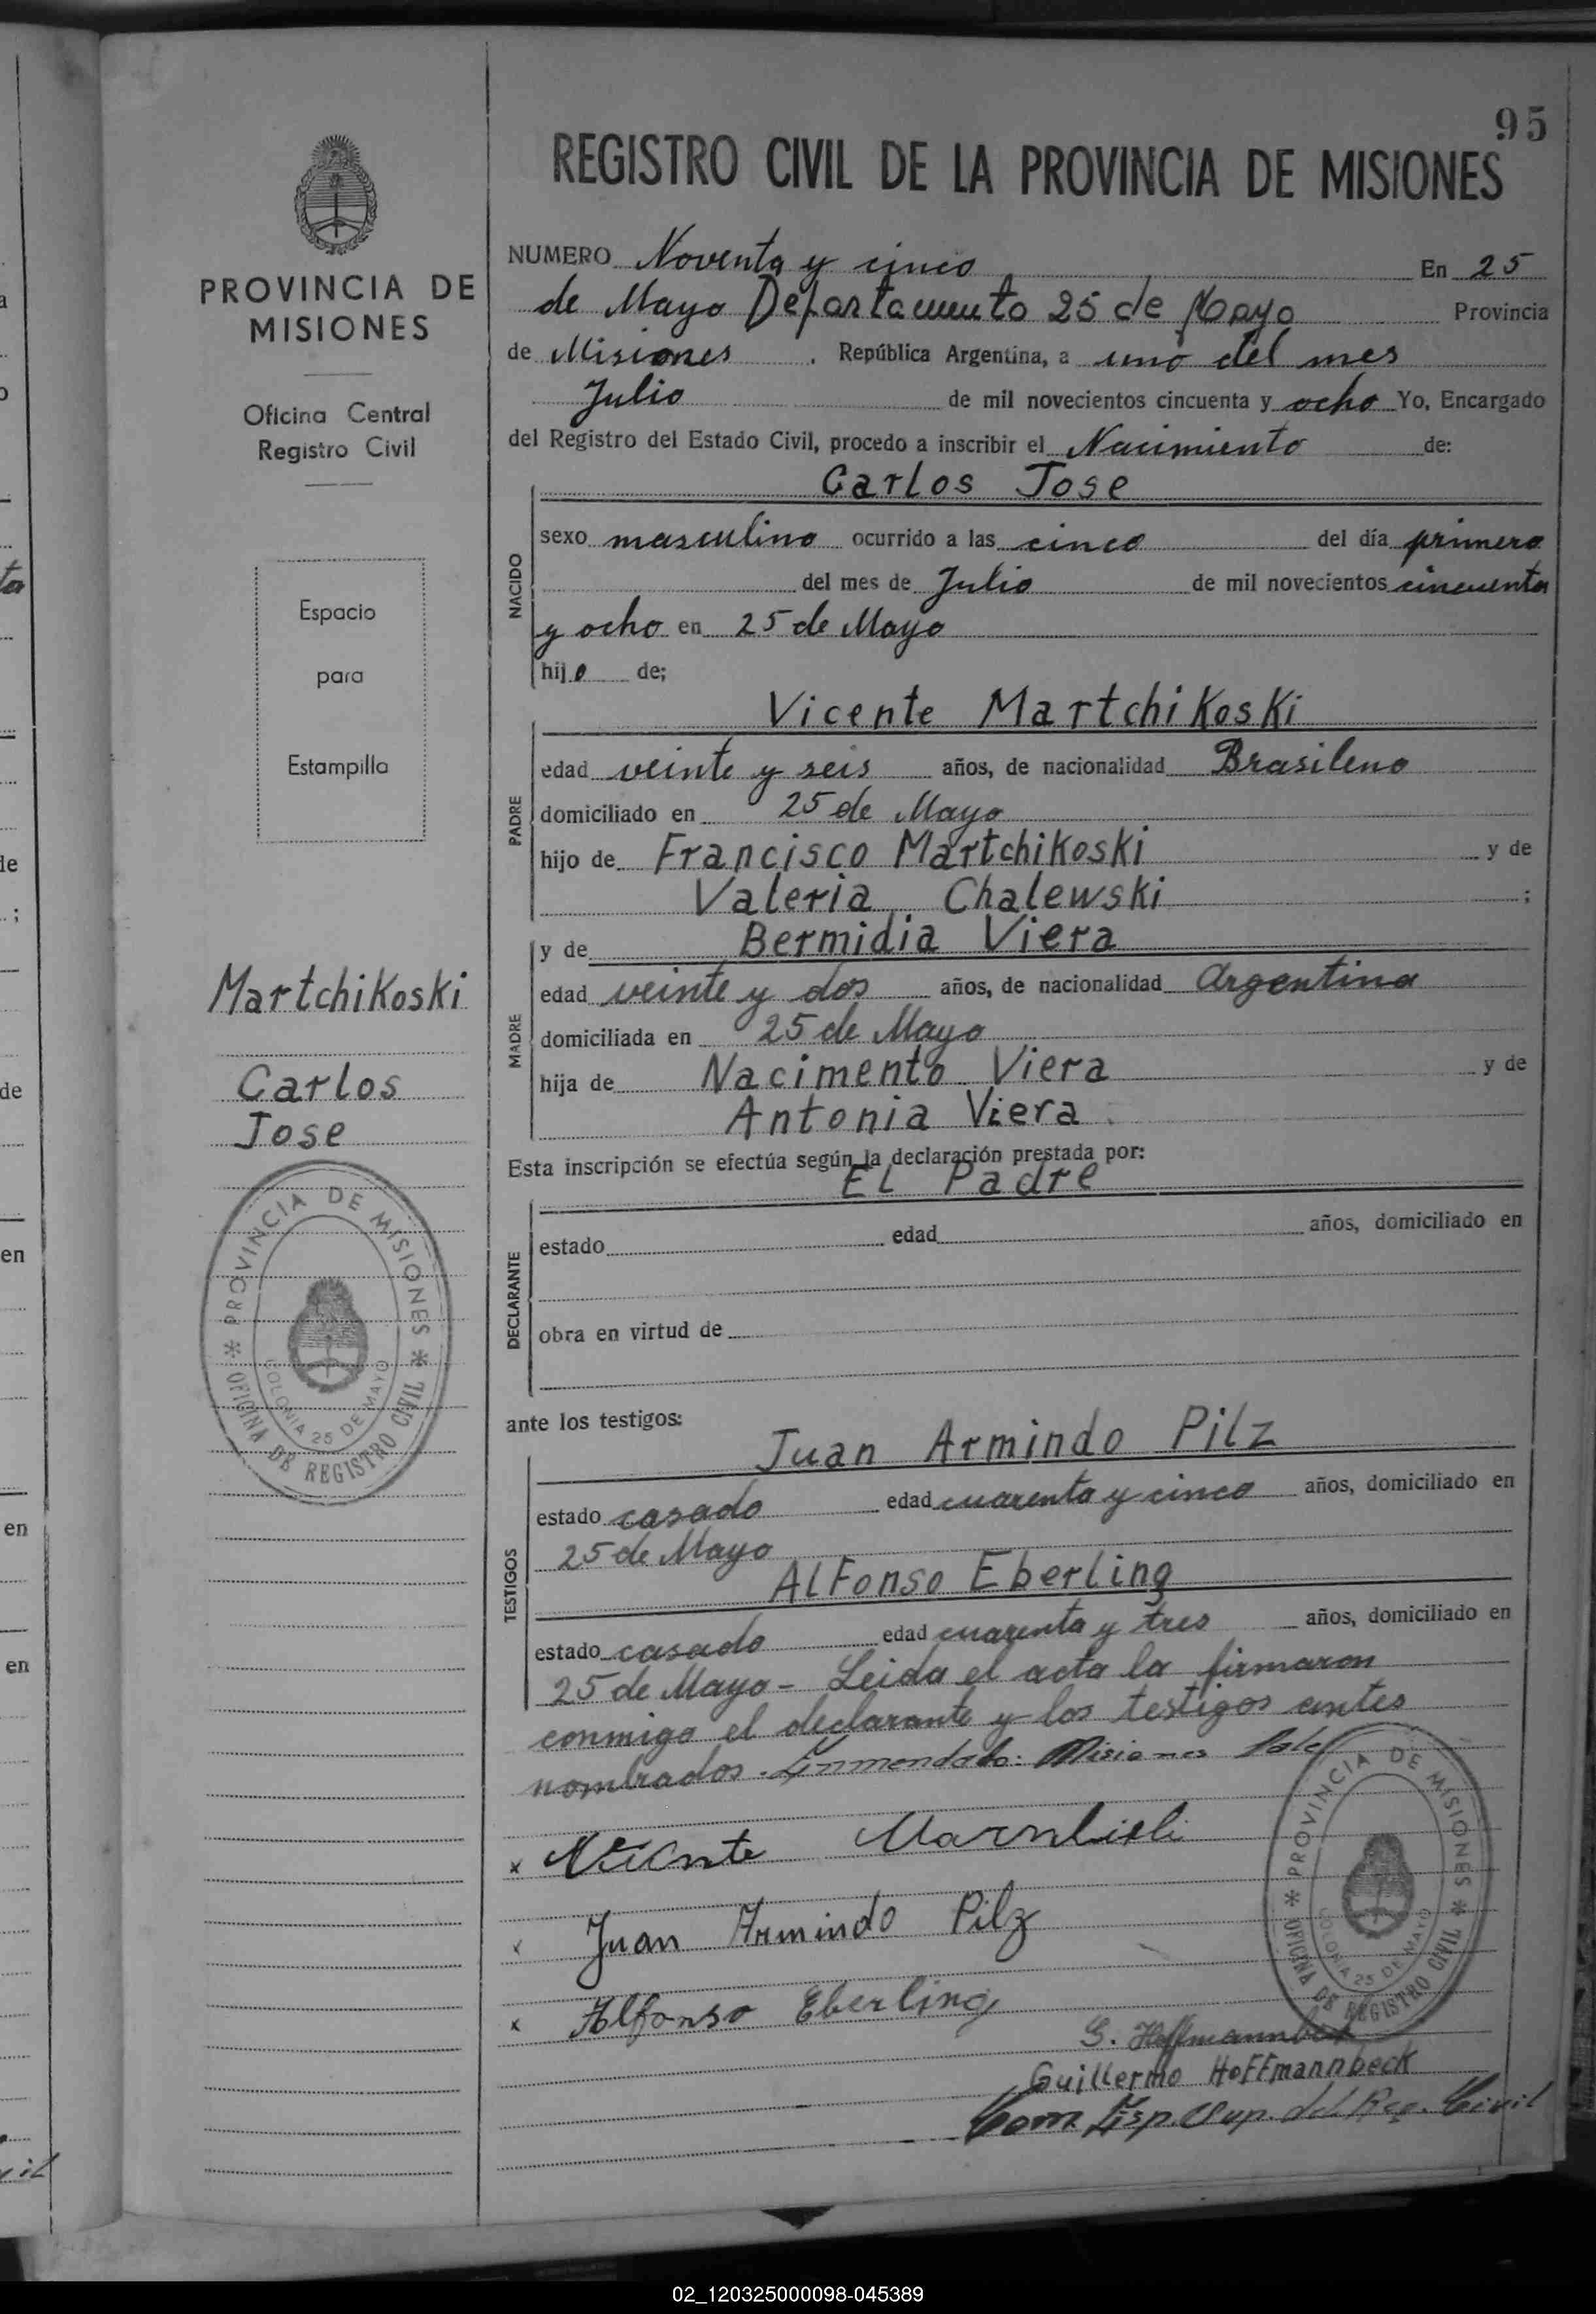 95
REGISTRO CIVIL DE LA PROVINCIA DE MISIONES
PROVINCIA DE
MISIONES
Oficina Central
Registro Civil
Espacio
para
Estampilla
Martchikoski
Carlos
Jose
PROVINCIA DE MISIONES
OFICINA DE REGISTRO CIVIL
COLONIA 25 DE MAYO
NUMERO Noventa y cinco En 25
de Mayo Departamento 25 de Mayo Provincia
de Misiones. República Argentina, a uno del mes
Julio de mil novecientos cincuenta y ocho Yo, Encargado
del Registro del Estado Civil, procedo a inscribir el Nacimiento de:
Carlos Jose
NACIDO
sexo masculino ocurrido a las cinco del día primero
del mes de Julio de mil novecientos cincuenta
y ocho en 25 de Mayo
hijo de;
Vicente Martchikoski
PADRE
edad veinte y seis años, de nacionalidad Brasileno
domiciliado en 25 de Mayo
hijo de Francisco Martchikoski y de
Valeria Chalewski ;
MADRE
y de Bermidia Viera
edad veinte y dos años, de nacionalidad Argentina
domiciliada en 25 de Mayo
hija de Nacimento Viera y de
Antonia Viera.
Esta inscripción se efectúa según la declaración prestada por:
El Padre
DECLARANTE
estado edad años, domiciliado en
obra en virtud de
ante los testigos:
Juan Armindo Pilz
TESTIGOS
estado casado edad cuarenta y cinco años, domiciliado en
25 de Mayo
Alfonso Eberling
estado casado edad cuarenta y tres años, domiciliado en
25 de Mayo - Leida el acta la firmaron
conmigo el declarante y los testigos antes
nombrados. Enmendado: Misiones Vale
x Vicente
x Juan Armindo Pilz
x Alfonso Eberling
PROVINCIA DE MISIONES
OFICINA DE REGISTRO CIVIL
COLONIA 25 DE MAYO
G. Hoffmannbeck
Guillermo Hoffmannbeck
Com. Esp. Sup. del Reg. Civil
02_120325000098-045389